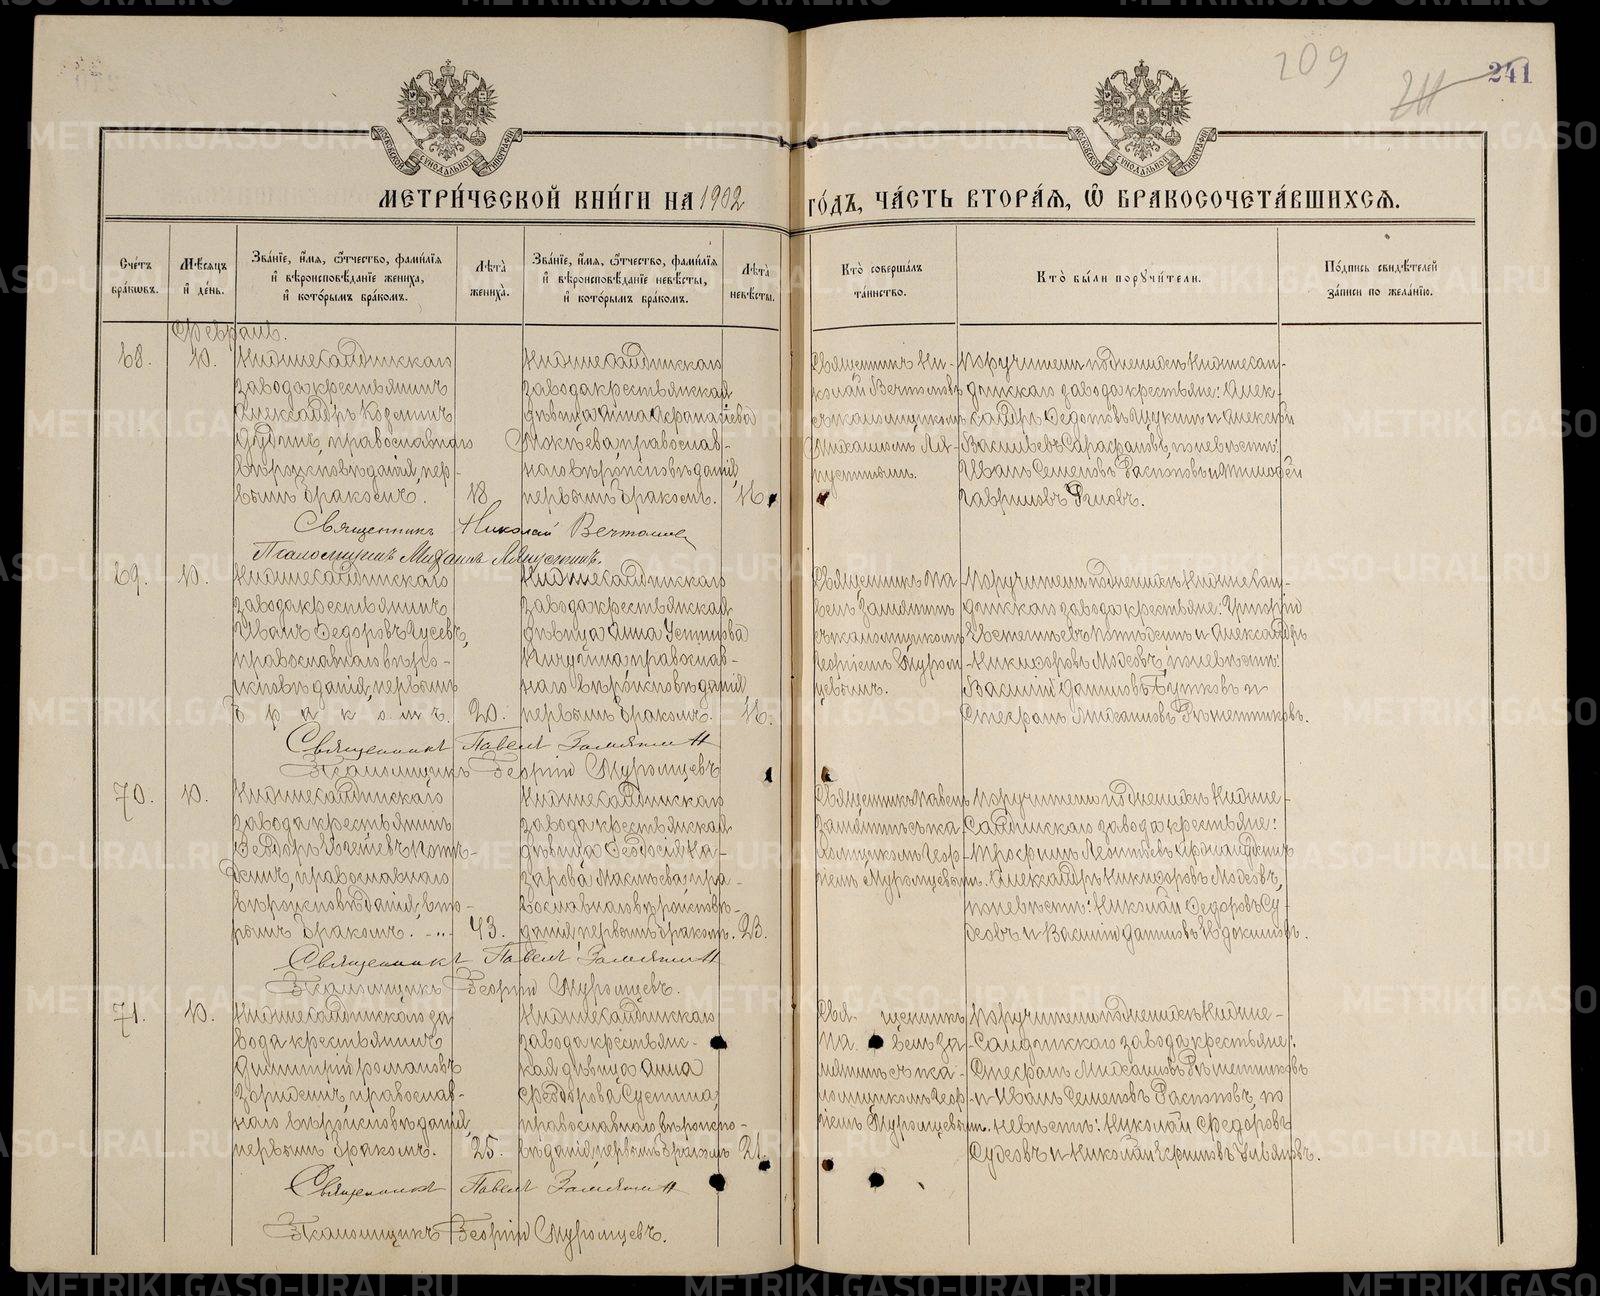 209
241
МЕТРИ́ЧЕСКОЙ КНИ́ГИ НА 1902 ГО́ДЪ, ЧА́СТЬ ВТОРА́Я, Ѽ БРАКОСОЧЕТА́ВШИХСЯ.
Сче́тъ бра́ковъ.
Мѣ́сяцъ и҆ де́нь.
Зва́нїе, и҆́мя, ѻ҆́тчество, фамилїя
и҆ вѣроисповѣ́данїе жениха̀,
и҆ кото́рымъ бра́комъ.
Лѣта̀ жениха̀.
Зва́нїе, и҆́мя, ѻ҆́тчество, фамилїя
и҆ вѣроисповѣ́данїе невѣ́сты,
и҆ кото́рымъ бра́комъ.
Лѣта̀ невѣ́сты.
Кто̀ соверша́лъ та́инство.
Кто̀ бы́ли поручи́тели.
По́дпись свидѣ́телей за́писи по жела́нїю.
Февраль.
68.
10.
Нижнесалдинскаго
завода крестьянинъ
Александръ Козминъ
православнаго
вѣроисповѣданія, пер-
вымъ бракомъ.
18
Нижнесалдинскаго
завода крестьянская
дѣвица Анна
православ-
наго вѣроисповѣданія,
первымъ бракомъ.
Священникъ Ни-
колай
съ псаломщикомъ
Михаиломъ
Поручители по женихѣ Нижнесал-
динскаго завода крестьяне: Алек-
сандръ Федотовъ Щукинъ и Алексѣй
Васильевъ по невѣстѣ:
Иванъ Семеновъ Распоповъ и Тимофей
Гавриловъ
Священникъ Николай
Псаломщикъ Михаилъ
69.
10.
Нижнесалдинскаго
завода крестьянинъ
Иванъ Ѳедоровъ Гусевъ,
православнаго вѣрои-
исповѣданія, первымъ
бракомъ.
20.
Нижнесалдинскаго
завода крестьянская
дѣвица Анна Устинова
православ-
наго вѣроисповѣданія,
первымъ бракомъ.
Священникъ Па-
велъ Замятинъ
съ псаломщикомъ
Георгіемъ Муром-
цевымъ.
Поручители по женихѣ Нижнесал-
динскаго завода крестьяне: Григорій
и Александръ
Никифоровъ Мохов, по невѣстѣ:
Василій Даниловъ и
Стефанъ Михаиловъ Рѣшетниковъ.
Священникъ Павелъ Замятинъ
Псаломщикъ Георгій Муромцевъ
70.
10.
Нижнесалдинскаго
завода крестьянинъ
Ѳеодоръ
православнаго
вѣроисповѣданія, вто-
рымъ бракомъ.
43.
Нижнесалдинскаго
завода крестьянская
дѣвица Ѳеодосія На-
зарова пра-
вославнаго вѣроисповѣ-
данія, первымъ бракомъ.
23.
Священникъ Павелъ
Замятинъ съ пса-
ломщикомъ Геор-
гіемъ Муромцевымъ.
Поручители по женихѣ Нижне-
Салдинскаго завода крестьяне:
Трофимъ Леонтьевъ
Александръ Никифоровъ Моховъ,
по невѣстѣ: Николай Ѳедоровъ Су-
ховъ и Василій Даниловъ Евдокимовъ.
Священникъ Павелъ Замятинъ
Псаломщикъ Георгій Муромцевъ.
71.
10.
Нижнесалдинскаго за-
вода крестьянинъ
Димитрій Романовъ
Зорихинъ, православ-
наго вѣроисповѣданія,
первымъ бракомъ.
25.
Нижнесалдинскаго
завода крестьянс-
кая дѣвица Анна
Ѳеодорова
православнаго вѣроиспо-
вѣданія, первымъ бракомъ
21.
Священникъ
Павелъ За-
мятинъ съ пса-
ломщикомъ Геор-
гіемъ Муромцевымъ.
Поручители по женихѣ Нижне-
Салдинскаго завода крестьяне:
Стефанъ Михаиловъ Рѣшетниковъ
и Иванъ Семеновъ Распоповъ, по
невѣстѣ: Николай Ѳедоровъ
Суховъ и Николай Ульяновъ.
Священникъ Павелъ Замятинъ
Псаломщикъ Георгій Муромцевъ.
METRIKI.GASO-URAL.RU